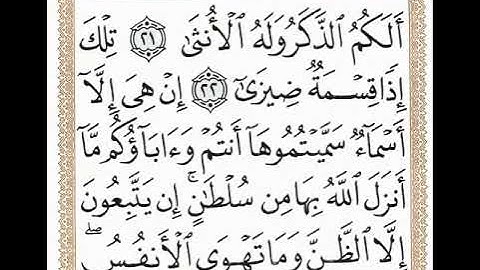 أَلَكُمُ ٱلذَّكَرُ وَلَهُ ٱلْأُنثَىٰ ٢١ تِلْكَ
إِذًا قِسْمَةٌ ضِيزَىٰٓ ٢٢ إِنْ هِىَ إِلَّآ
أَسْمَآءٌ سَمَّيْتُمُوهَآ أَنتُمْ وَءَابَآؤُكُم مَّآ
أَنزَلَ ٱللَّهُ بِهَا مِن سُلْطَٰنٍ ۚ إِن يَتَّبِعُونَ
إِلَّا ٱلظَّنَّ وَمَا تَهْوَى ٱلْأَنفُسُ ۖ